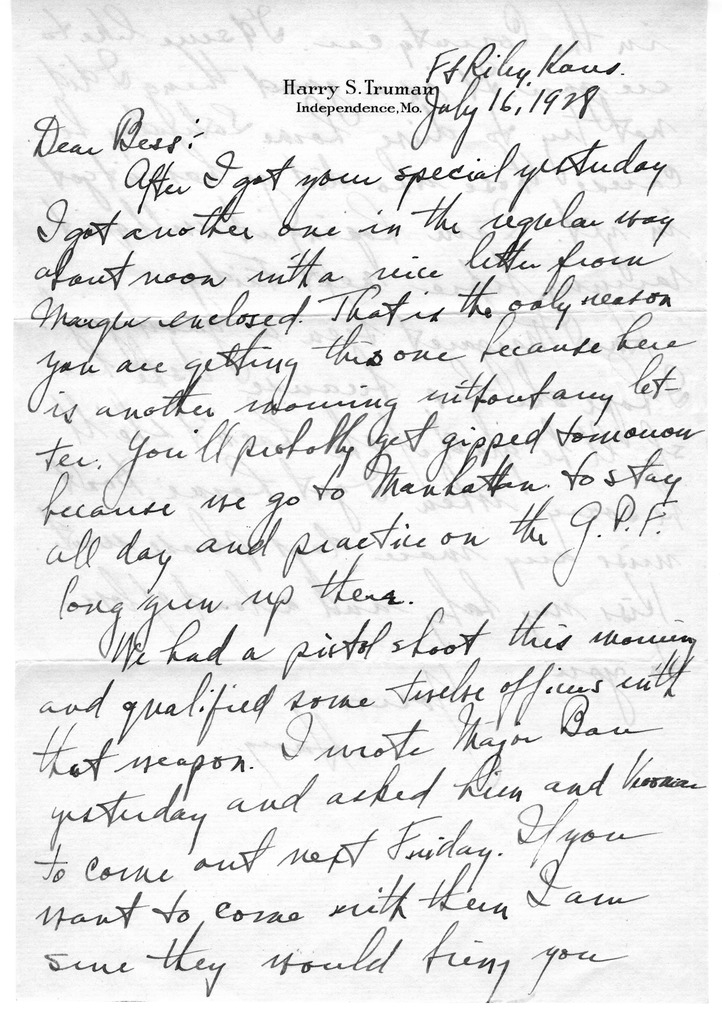 Ft Riley, Kans.
Harry S. Truman
Independence, Mo.
July 16, 1928
Dear Bess:-
After I got your special yesterday
I got another one in the regular way
about noon with a nice letter from
Margie enclosed. That is the only reason
you are getting this one because here
is another morning without any let-
ter. You'll probably get gipped tomorrow
because we go to Manhattan to stay
all day and practice on the G.P.F.
long gun up there.
We had a pistol shoot this morning
and qualified some twelve officers with
that weapon. I wrote Major Barr
yesterday and asked him and Vrooman
to come out next Friday. If you
want to come with them I am
sure they would bring you